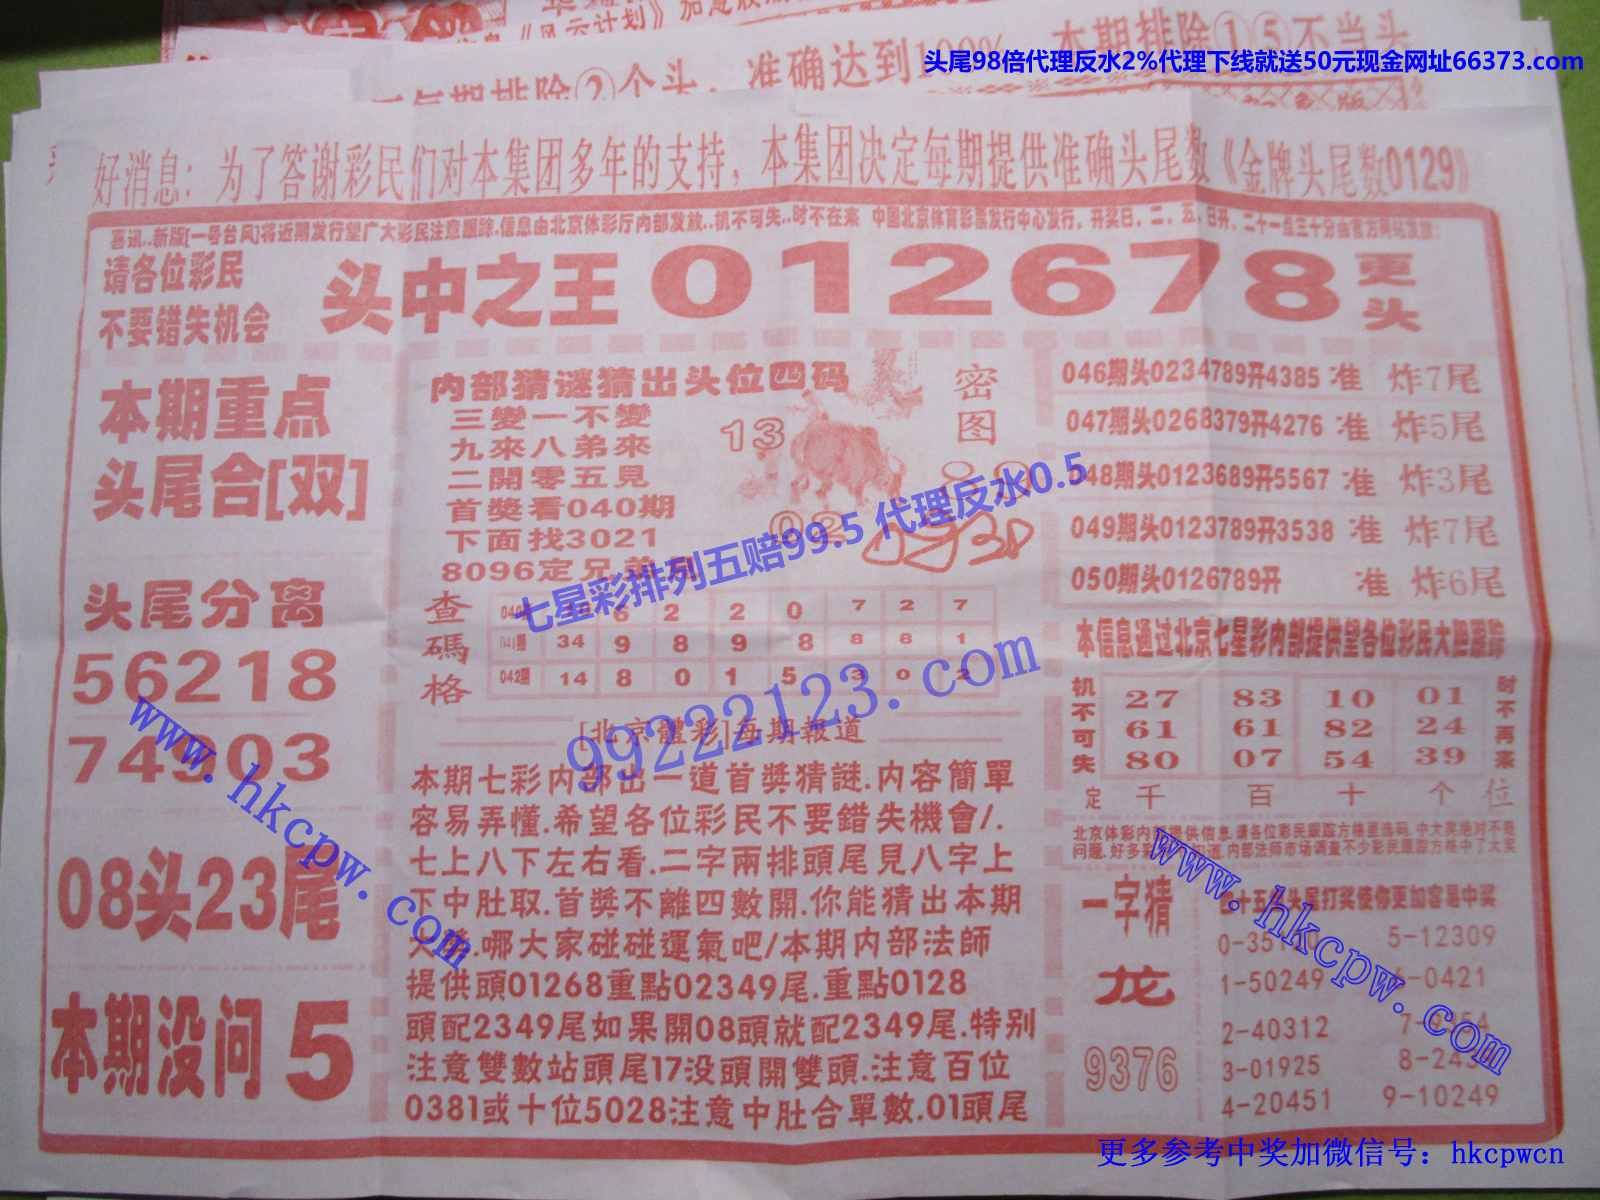 《风云计划》
头尾98倍代理反水2%代理下线就送50元现金网址66373.com
每期排除②个头，准确达到100%，本期排除①⑤不当头
好消息：为了答谢彩民们对本集团多年的支持，本集团决定每期提供准确头尾数《金牌头尾数0129》
喜讯..新版[一号台风]将近期发行望广大彩民注意跟踪.信息由北京体彩厅内部发放..机不可失..时不在来 中国北京体育彩票发行中心发行，开奖日，二，五，日开，二十一点三十分由官方网站发放：
请各位彩民
不要错失机会
头中之王012678更
头
本期重点
头尾合[双]
头尾分离
56218
74903
08头23尾
本期没问5
内部猜谜猜出头位四码
三變一不變
九來八弟來
二開零五見
首獎看040期
下面找3021
8096定兄弟
密
图
13
02
七星彩排列五赔99.5 代理反水0.5
查
碼
格
6 2 2 0 7 2 7
041期 34 9 8 9 8 8 8 1
042期 14 8 0 1 5 3 0 2
99222123.com
[北京體彩]每期報道
本期七彩内部出一道首獎猜謎.内容簡單
容易弄懂.希望各位彩民不要錯失機會/.
七上八下左右看.二字兩排頭尾見八字上
下中肚取.首獎不離四數開.你能猜出本期
.哪大家碰碰運氣吧/本期内部法師
提供頭01268重點02349尾.重點0128
頭配2349尾如果開08頭就配2349尾.特别
注意雙數站頭尾17没頭開雙頭.注意百位
0381或十位5028注意中肚合單數.01頭尾
046期头0234789开4385 准 炸7尾
047期头0268379开4276 准 炸5尾
048期头0123689开5567 准 炸3尾
049期头0123789开3538 准 炸7尾
050期头0126789开 准 炸6尾
本信息通过北京七星彩内部提供望各位彩民大胆跟踪
机不可失
27 83 10 01
61 61 82 24
80 07 54 39
时不再来
定 千 百 十 个 位
北京体彩内部提供信息.请各位彩民跟踪方格里选码.中大奖绝对不是
问题.好多彩 道.内部法师市场调查不少彩民跟踪方格中了大奖
一字猜
龙
9376
十五 头尾打奖使你更加容易中奖
5-12309
1-50249 -0421
2-40312
3-01925
4-20451 9-10249
www.hkcpw.com
www.hkcpw.com
更多参考中奖加微信号：hkcpwcn